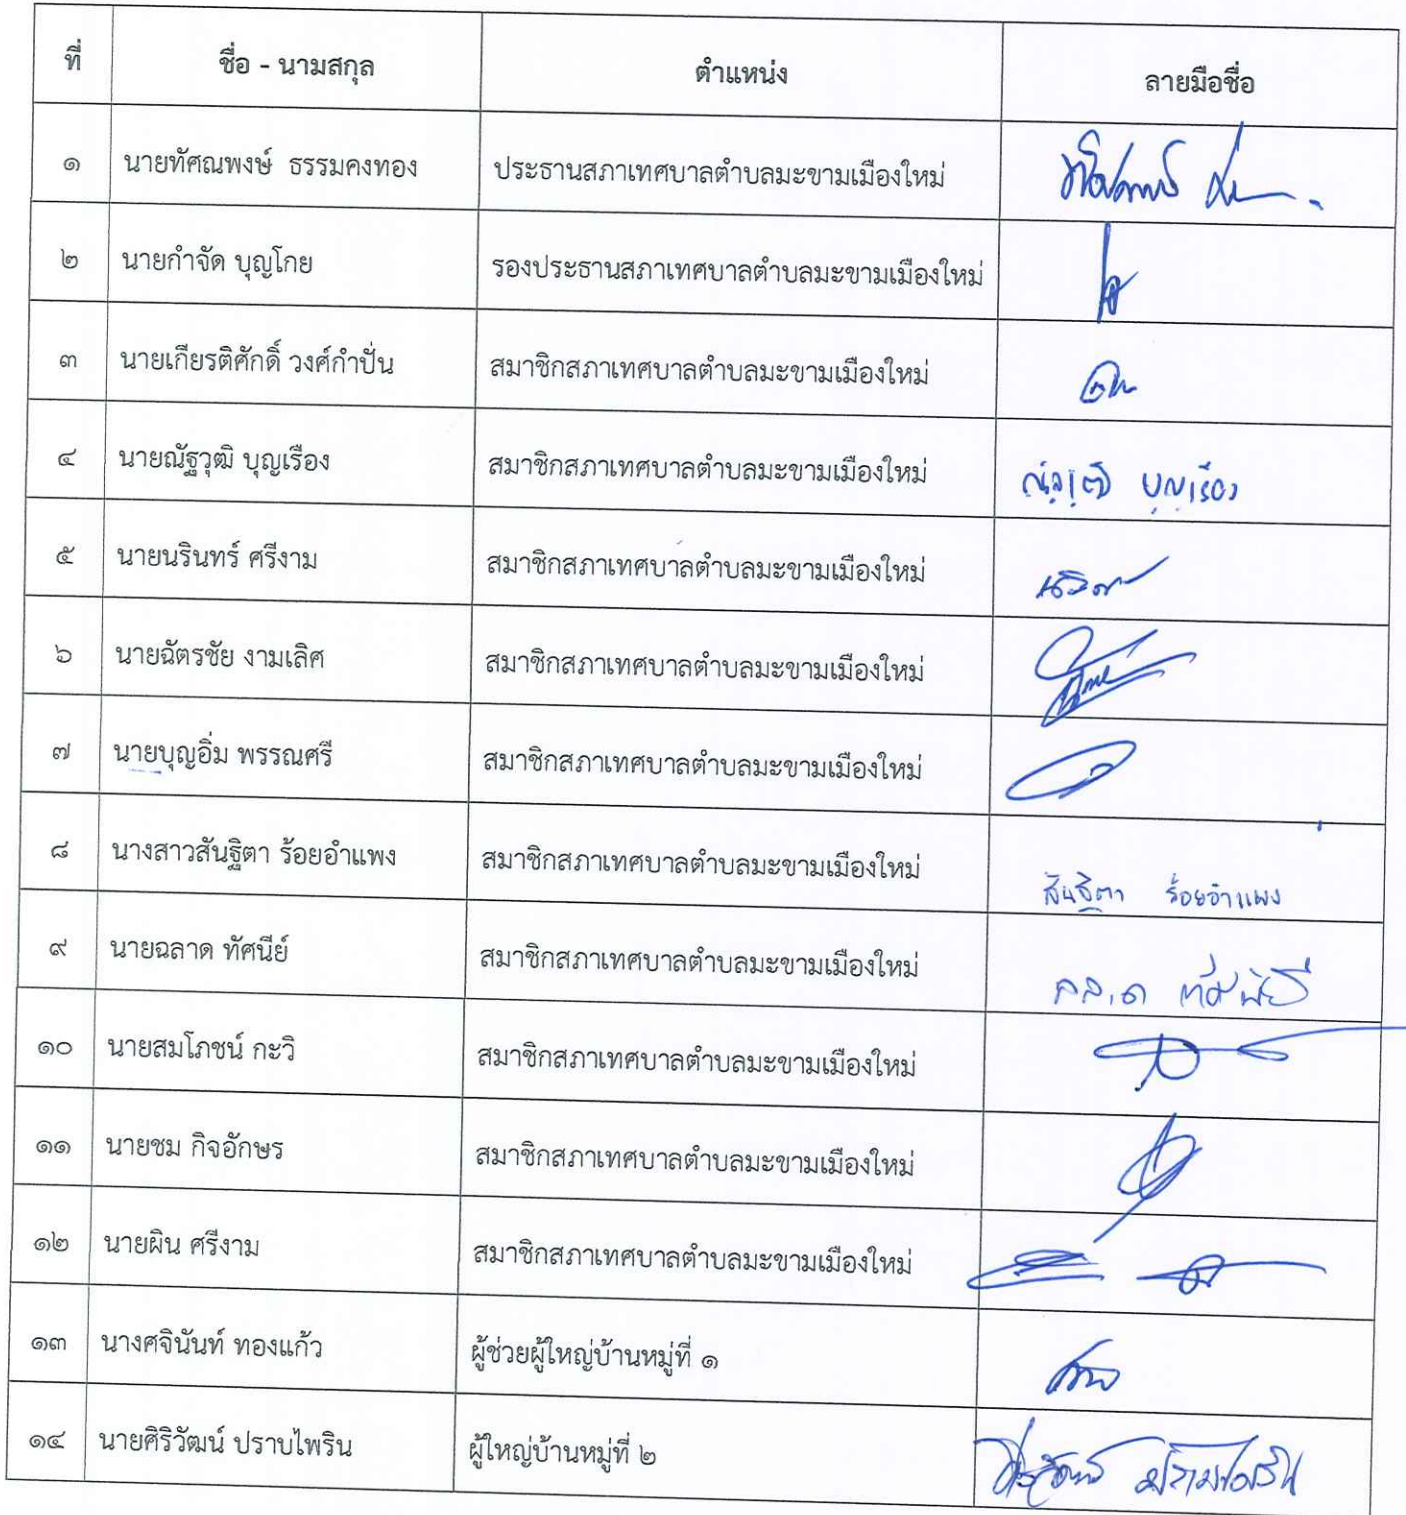 ที่ ชื่อ - นามสกุล ตำแหน่ง ลายมือชื่อ
๑ นายทัศณพงษ์ ธรรมคงทอง ประธานสภาเทศบาลตำบลมะขามเมืองใหม่
๒ นายกำจัด บุญโกย รองประธานสภาเทศบาลตำบลมะขามเมืองใหม่
๓ นายเกียรติศักดิ์ วงศ์กำปั่น สมาชิกสภาเทศบาลตำบลมะขามเมืองใหม่
๔ นายณัฐวุฒิ บุญเรือง สมาชิกสภาเทศบาลตำบลมะขามเมืองใหม่ ณัฐวุฒิ บุญเรือง
๕ นายนรินทร์ ศรีงาม สมาชิกสภาเทศบาลตำบลมะขามเมืองใหม่
๖ นายฉัตรชัย งามเลิศ สมาชิกสภาเทศบาลตำบลมะขามเมืองใหม่
๗ นายบุญอิ่ม พรรณศรี สมาชิกสภาเทศบาลตำบลมะขามเมืองใหม่
๘ นางสาวสันฐิตา ร้อยอำแพง สมาชิกสภาเทศบาลตำบลมะขามเมืองใหม่ สันฐิตา ร้อยอำแพง
๙ นายฉลาด ทัศนีย์ สมาชิกสภาเทศบาลตำบลมะขามเมืองใหม่ ฉลาด ทัศนีย์
๑๐ นายสมโภชน์ กะวิ สมาชิกสภาเทศบาลตำบลมะขามเมืองใหม่
๑๑ นายชม กิจอักษร สมาชิกสภาเทศบาลตำบลมะขามเมืองใหม่
๑๒ นายผิน ศรีงาม สมาชิกสภาเทศบาลตำบลมะขามเมืองใหม่
๑๓ นางศจินันท์ ทองแก้ว ผู้ช่วยผู้ใหญ่บ้านหมู่ที่ ๑
๑๔ นายศิริวัฒน์ ปราบไพริน ผู้ใหญ่บ้านหมู่ที่ ๒ ศิริวัฒน์ ปราบไพริน